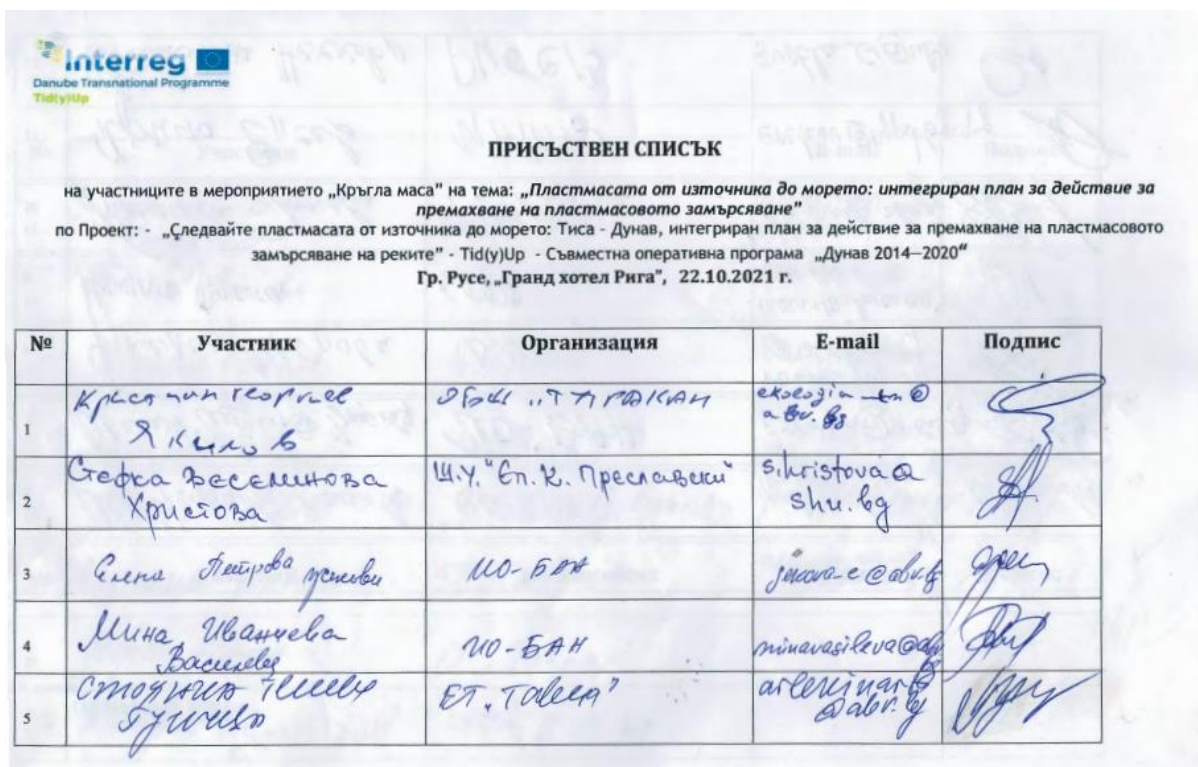 Interreg
Danube Transnational Programme
Tid(y)Up
ПРИСЪСТВЕН СПИСЪК
на участниците в мероприятието „Кръгла маса" на тема: „Пластмасата от източника до морето: интегриран план за действие за
премахване на пластмасовото замърсяване"
по Проект: - „Следвайте пластмасата от източника до морето: Тиса - Дунав, интегриран план за действие за премахване на пластмасовото
замърсяване на реките" - Tid(y)Up - Съвместна оперативна програма „Дунав 2014—2020"
Гр. Русе, „Гранд хотел Рига", 22.10.2021 г.
№ Участник Организация E-mail Подпис
1
Георгиев
Якимов
abv.bg
2
Стефка Веселинова
Христова
Ш.У. "Еп. К. Преславски"
s.hristova@
shu.bg
3
Елена Петрова
ИО-БАН
4
Мина Иванчева
Василева
ИО-БАН
5